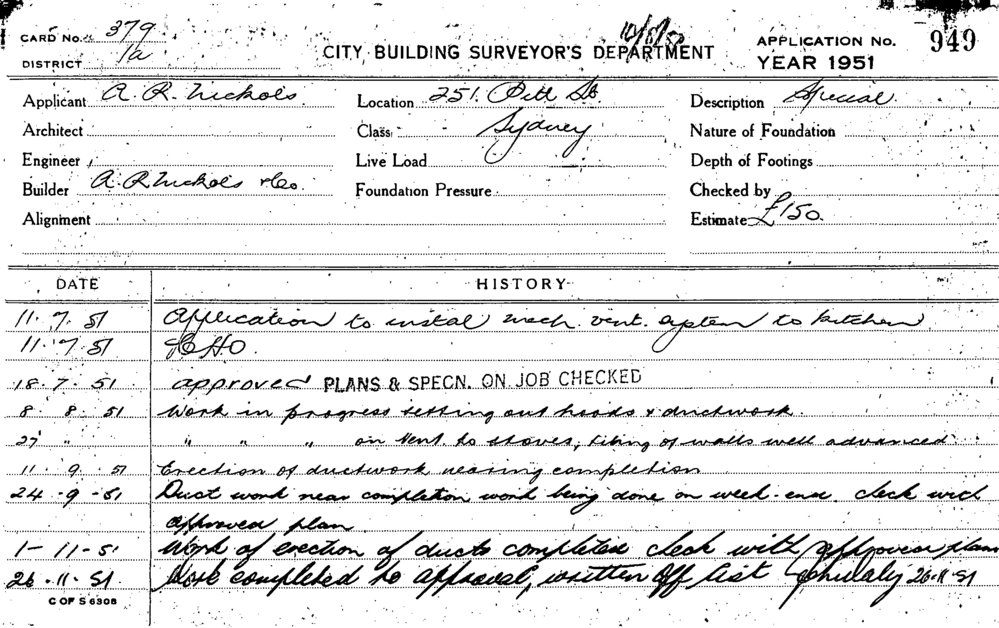 CARD No. 379
DISTRICT 1a
CITY BUILDING SURVEYOR'S DEPARTMENT
APPLICATION No. 949
YEAR 1951
Applicant A. R. Nichols Location 251. Pitt St. Description Special
Architect Class Sydney Nature of Foundation
Engineer Live Load Depth of Footings
Builder A. R Nichols & Co. Foundation Pressure Checked by
Alignment Estimate £150.
DATE HISTORY
11. 7. 51 Application to instal mech. vent. system to kitchen
11. 7. 51 CHO.
18. 7. 51 approved PLANS & SPECN. ON JOB CHECKED
8. 8. 51 Work in progress setting out hoods & ductwork.
27 " " " " on vent to stoves, tiling of walls well advanced
11. 9. 51 Erection of ductwork nearing completion
24. 9. 51 Duct work near completion work being done on week-end. check with
approved plan
1-11-51 Work of erection of ducts completed check with approved plan
26.11.51. Work completed to approval, written off list 26.11.51
C OF S 6308